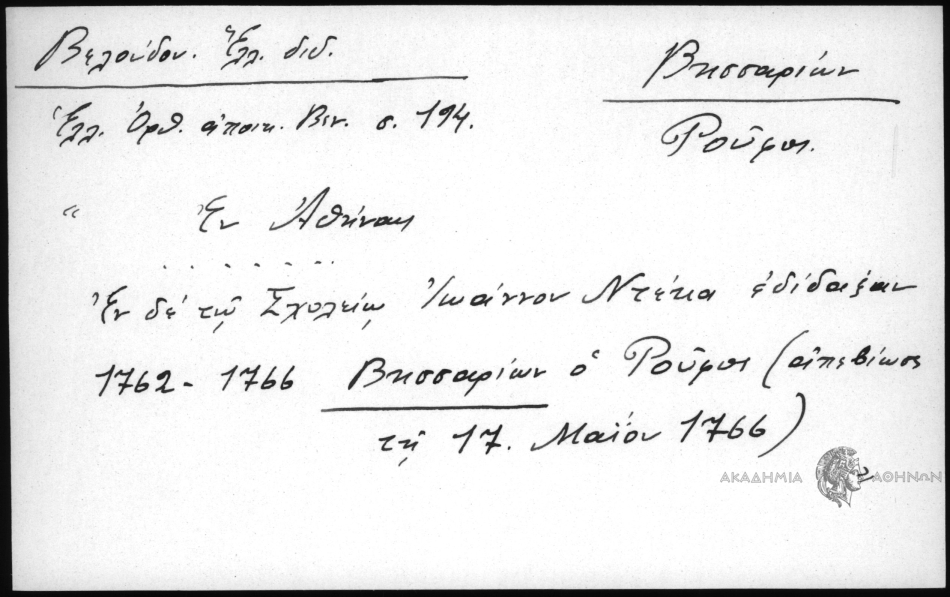 Βελούδου. Ἑλλ. διδ.
Βησσαρίων
Ἑλλ. Ὀρθ. ἀποικ. Βεν. σ. 194.
Ῥοῦφος.
“ Ἐν Ἀθήναις
. . . . . . .
Ἐν δὲ τῷ Σχολείῳ Ἰωάννου Ντέκα ἐδίδαξαν
1762 - 1766 Βησσαρίων ὁ Ῥοῦφος (ἀπεβίωσε
τῇ 17. Μαΐου 1766)
ΑΚΑΔΗΜΙΑ ΑΘΗΝΩΝ